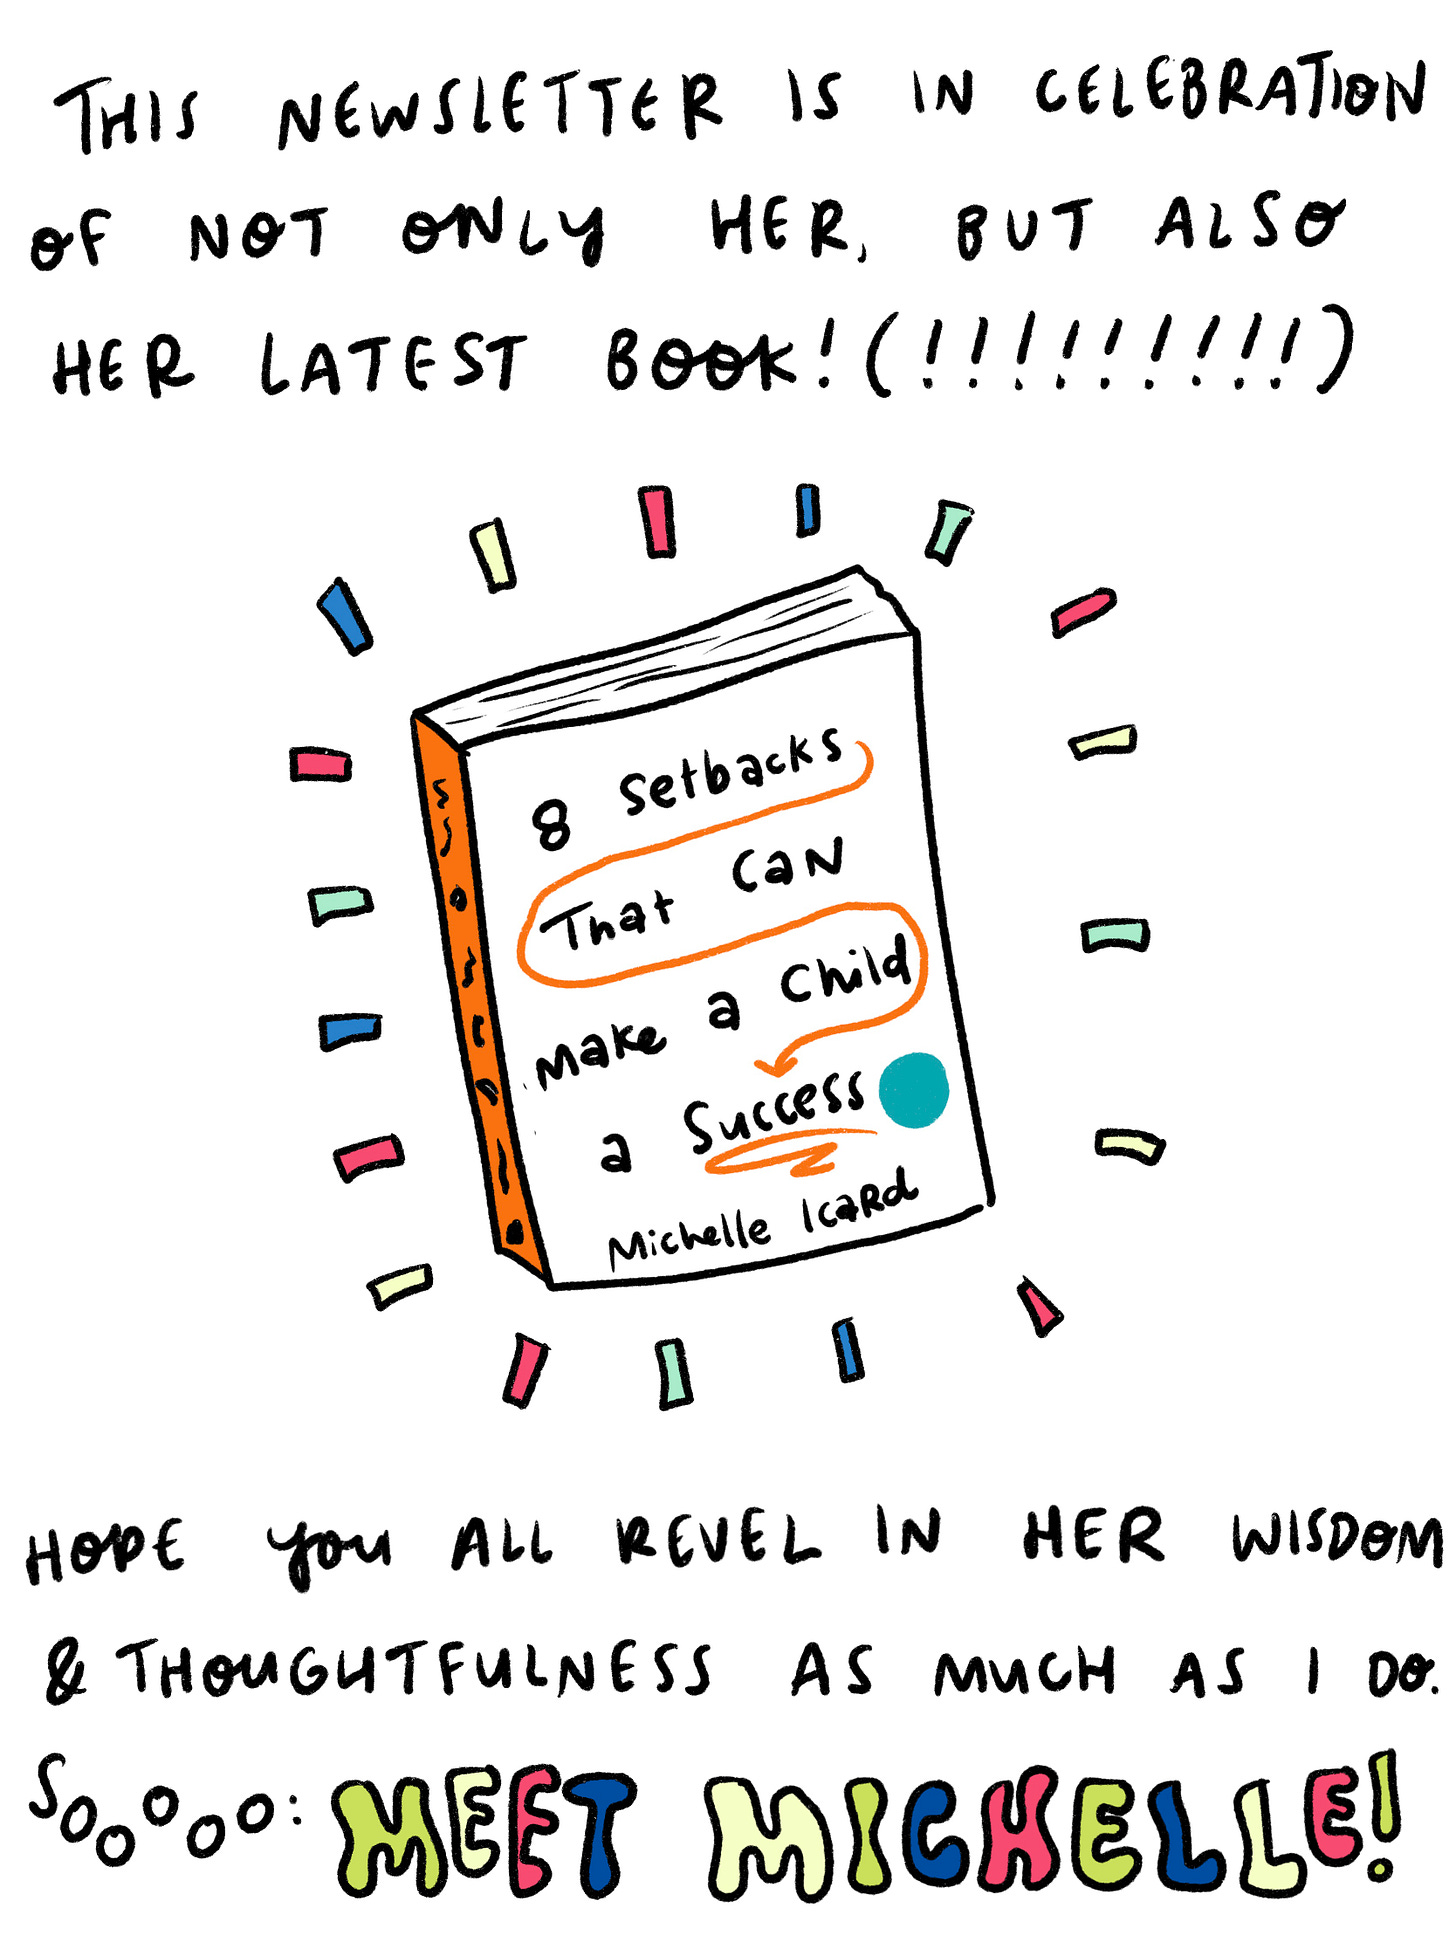 THIS NEWSLETTER IS IN CELEBRATION
OF NOT ONLY HER, BUT ALSO
HER LATEST BOOK! (!!!!!!!!!)
8 Setbacks
That CAN
Make a Child
a Success
Michelle Icard
HOPE YOU ALL REVEL IN HER WISDOM
& THOUGHTFULNESS AS MUCH AS I DO.
SOOOOO: MEET MICHELLE!